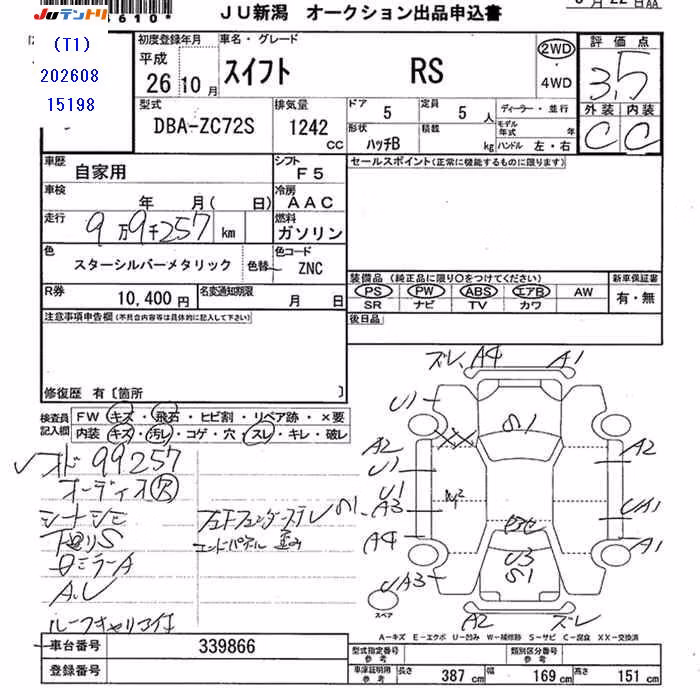 JUテントリ
JU新潟 オークション出品申込書
(T1)
202608
15198
初度登録年月
平成
26年10月
車名・グレード
スイフト RS
2WD
4WD
評価点
3.5
外装 内装
C C
型式
DBA-ZC72S
排気量
1242 CC
ドア 5
定員 5人
ディーラー・並行
形状 ハッチB
積載 kg
モデル年式 年
ハンドル 左・右
車歴 自家用
シフト F5
セールスポイント(正常に機能するものに限ります)
車検 年 月( 日)
冷房 AAC
走行 9万9千257 km
燃料 ガソリン
色 スターシルバーメタリック
色替
色コード ZNC
装備品(純正品に限り○をつけてください)
PS PW ABS エアB AW
SR ナビ TV カワ
新車保証書
有・無
R券 10,400円
名変通知期限 月 日
後日品
注意事項申告欄(不具合内容等は具体的に記入して下さい)
修復歴 有〔箇所 〕
検査員記入欄
FW キズ・飛石・ヒビ割・リペア跡・×要
内装 キズ・汚レ・コゲ・穴・スレ・キレ・破レ
オド 99257
オーディオ欠
シートシミ
下廻りS
ミラーA
A.U
ズレ A4 A1
U1 S1
A2 A2
U1
U1
A3
A4 A1
U3
S1
UA3
A2 ズレ
スペア
A-キズ E-エクボ U-凹み W-補修跡 S-サビ C-腐食 XX-交換済
車台番号 339866
登録番号
型式指定番号 参考
類別区分番号 参考
車庫証明用 参考
長さ 387cm 幅 169cm 高さ 151cm